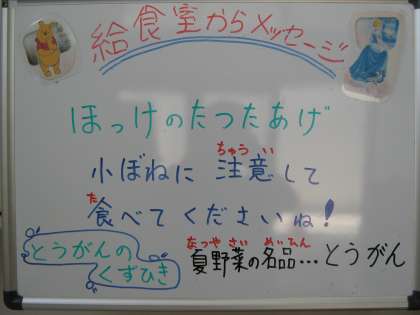 給食室からメッセージ
ほっけのたつたあげ
小ぼねに 注意して
食べてくださいね!
とうがんの
くずひき
夏野菜の名品…とうがん
ちゅうい
た
なつやさい めいひん